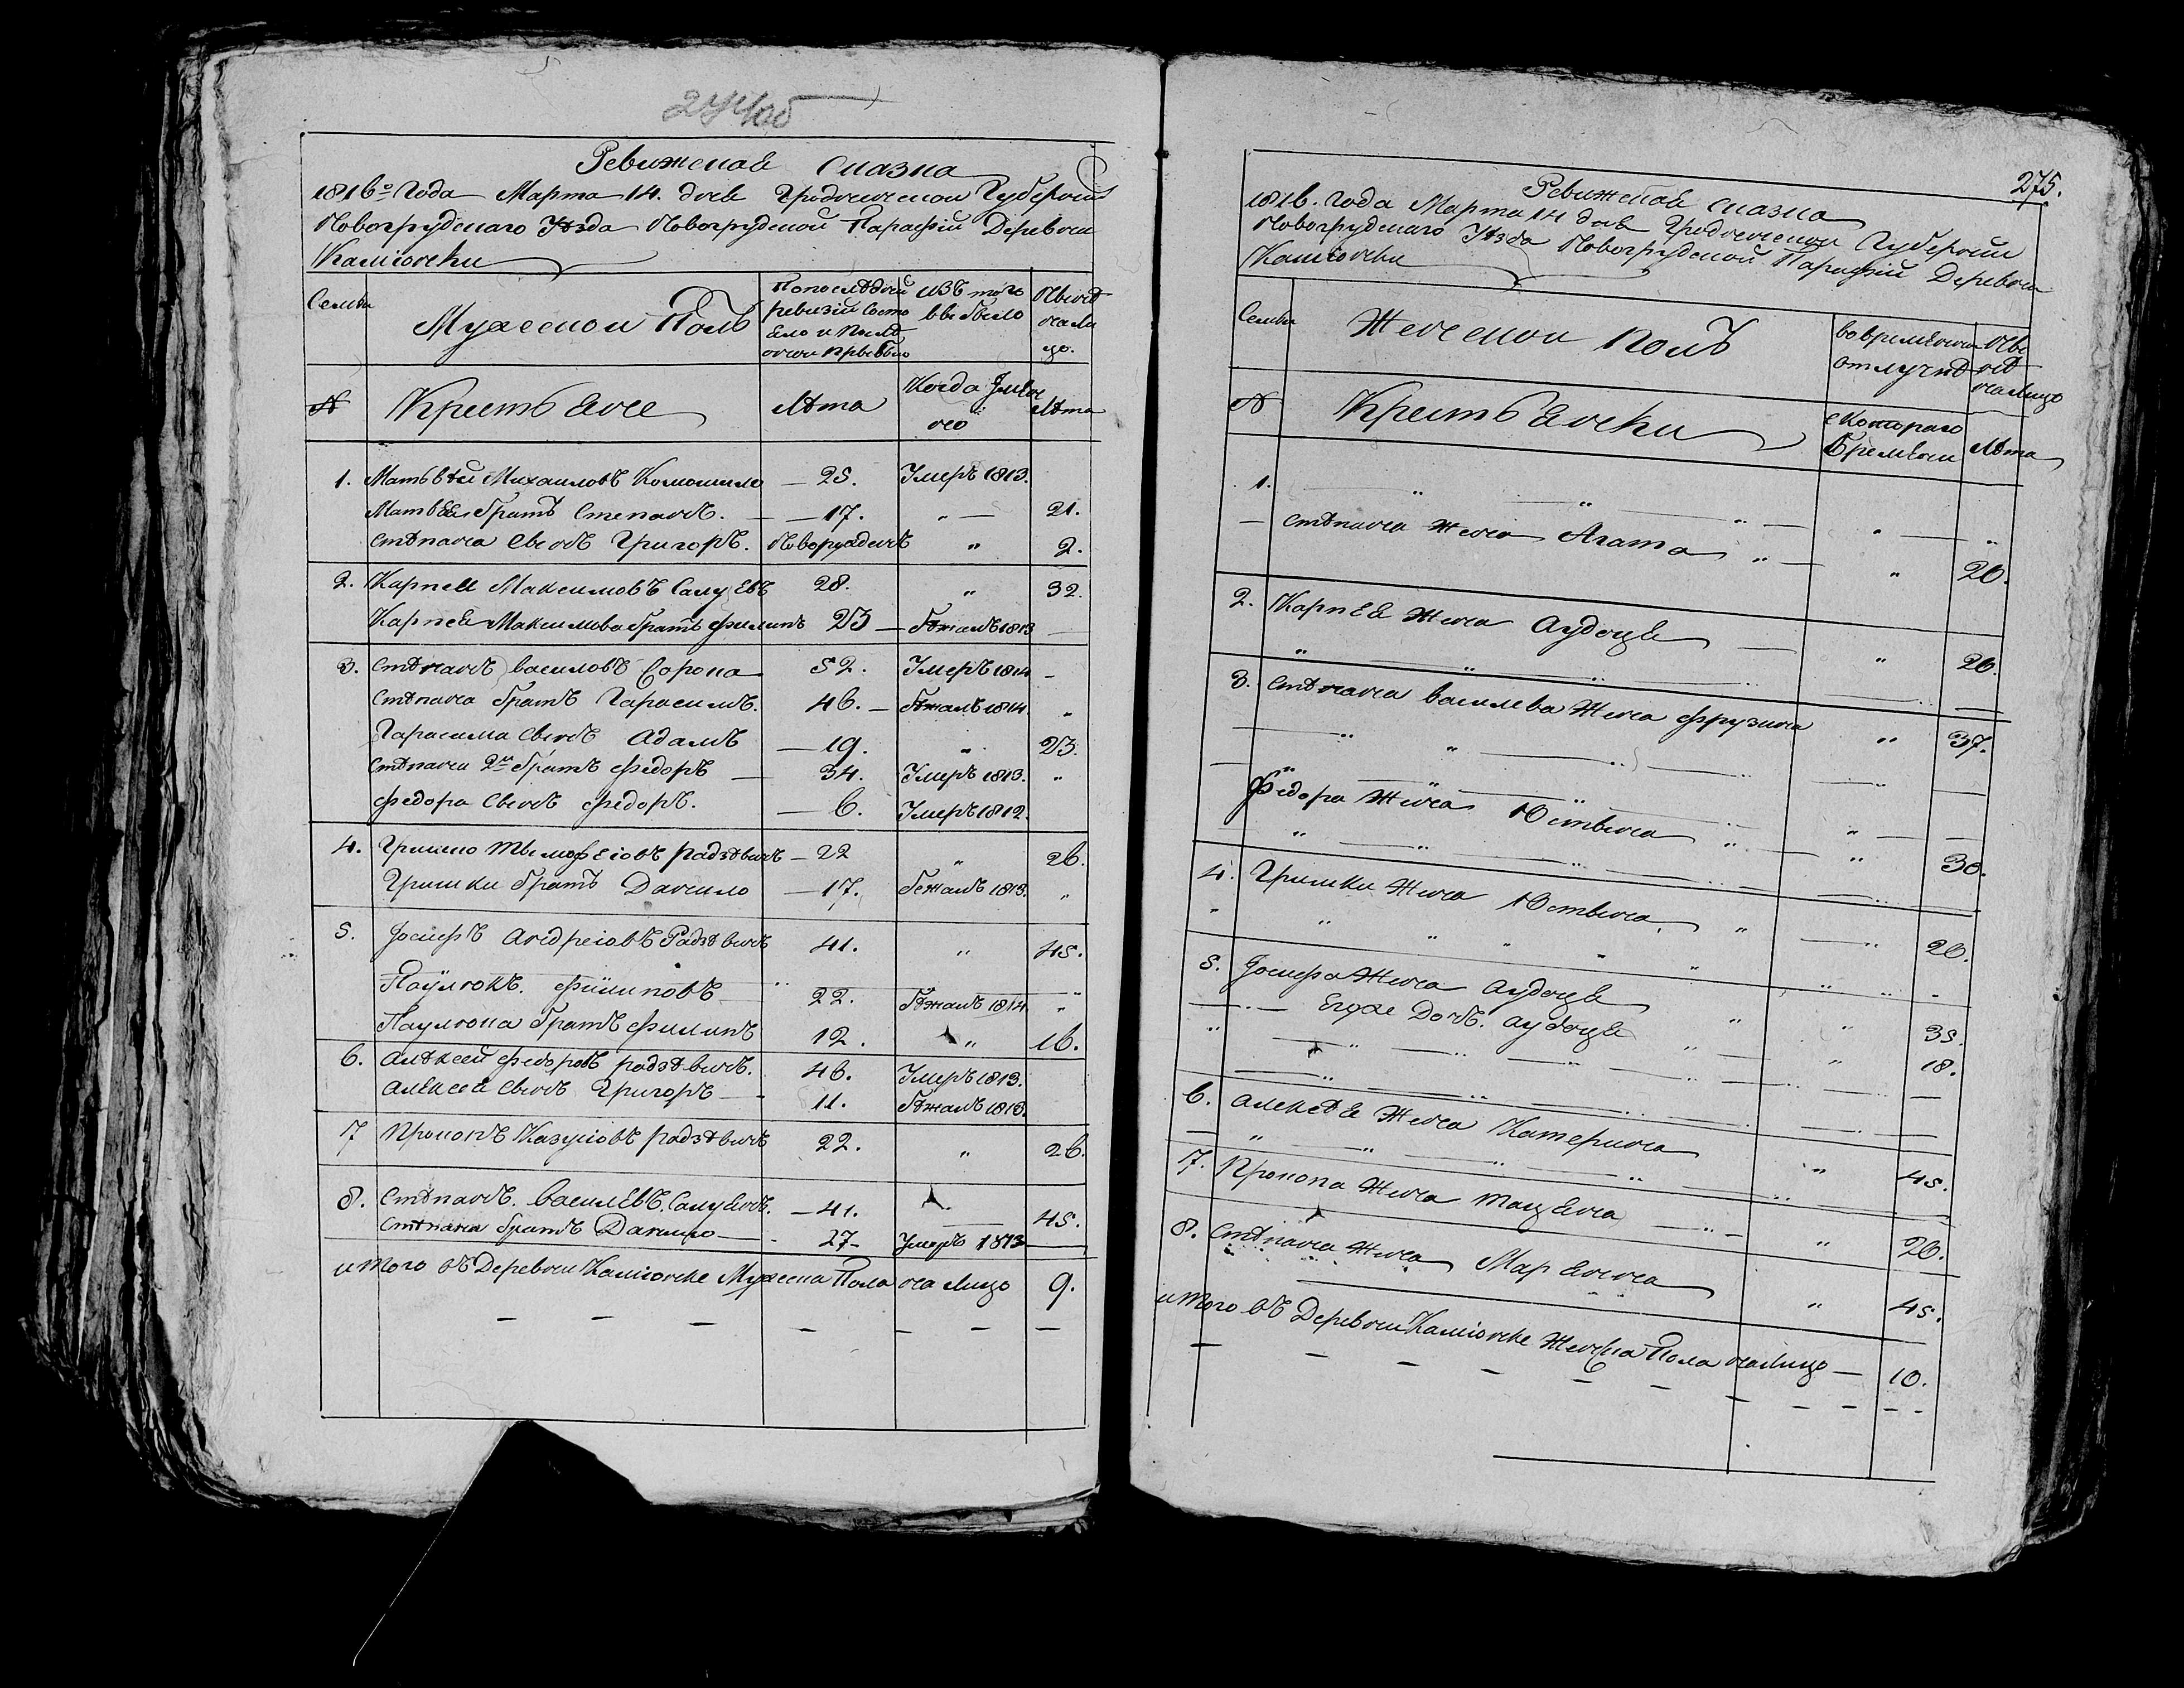 274об
Ревижская сказка
1816го Года Марта 14. дня Гродненской Губернии
Новогрудскаго Уѣзда Новогрудской Парафіи Деревни
Каміонки
Семьи
Мужеской Полъ
По последней ревизіи Состо
изъ того
Ныне на ли
цо.
№
Крестьяне
Лѣта
Когда Имянно
Лѣта
1. Матьвѣй Михаиловъ — 25. Умеръ 1813.
Матвея братъ Степанъ. — 17. „ — 21.
Стѣпана Сынъ Григоръ. Новорожденъ „ 2.
2. Карпей Максимовъ 28. „ 32.
Карпея Максимова братъ Филипъ 23 — Бѣжалъ 1813 —
3. Стѣпанъ василовъ Сорока 52. Умеръ 1814 —
Стѣпана братъ Гарасимъ. 46. — Бѣжалъ 1814. „
Гарасима Сынъ Адамъ — 19. „ 23.
Стѣпана 2й братъ Федоръ — 34. Умеръ 1813. „
Федора Сынъ Федоръ. — 6. Умеръ 1812.
4. Гришко Тимофеіовъ Радзѣвилъ — 22 „ 26.
Гришки братъ Данило — 17. Бежалъ 1813. „
5. Іосифъ Андреіовъ Радзѣвилъ 41. „ 45.
Паулюкъ. Филиповъ 22. Бѣжалъ 1814. „
Паулюка братъ Филипъ 12. „ 16.
6. Алѣксей Федоровъ Радзѣвилъ. 46. Умеръ 1813.
Алексея Сынъ Григоръ — 11. Бѣжалъ 1813.
7 Прокопъ Радзѣвилъ 22. „ 26.
8. Стѣпанъ. Василевъ. — 41. — 45.
Стѣпана братъ Данило — 27 — Умеръ 1813 —
итого въ Деревни Каміонке Мужеска Пола на лицо 9.
275.
Ревижская сказка
1816. года Марта 14 дня Гродненской Губернии
Новогрудскаго Уѣзда Новогрудской Парафіи Деревни
Каміонки
Семьи
Женской полъ
во временной
отлучкѣ
Ныне
на лицо
№
Крестьянки
с Котораго
Времени
Лѣта
1. „ „ „ — „ — „
— Стѣпана жена Агата „ — „ 20.
2. Карпея жена Аудоця — „ 20.
„ — „ — „ — „ — „ —
3. Стѣпана Василева жена Фрузина „ 37.
— „ — „ — „ — „ — „ —
— „ — „ — „ — „ —
Федора жена Юстына „ — „ 30.
„ — „ — „ — „ — „ —
4. Гришки жена Юстына „ — „ 20.
„ „ „ „ „ „ „ „ „
5. Іосифа жена Аудоця „ „ 35.
— Дочь. Аудоця „ — „ 18.
„ — „ — „ — „ — „ —
— „ — „ — „ — „ —
6. Алексѣя жена Катерина „ 45.
— „ — „ — „ — „ — „ —
7. Прокопа жена — „ — „ 20.
8. Стѣпана жена Марянна „ 45.
итого въ Деревни Каміонке Женска Пола на лицо — 10.